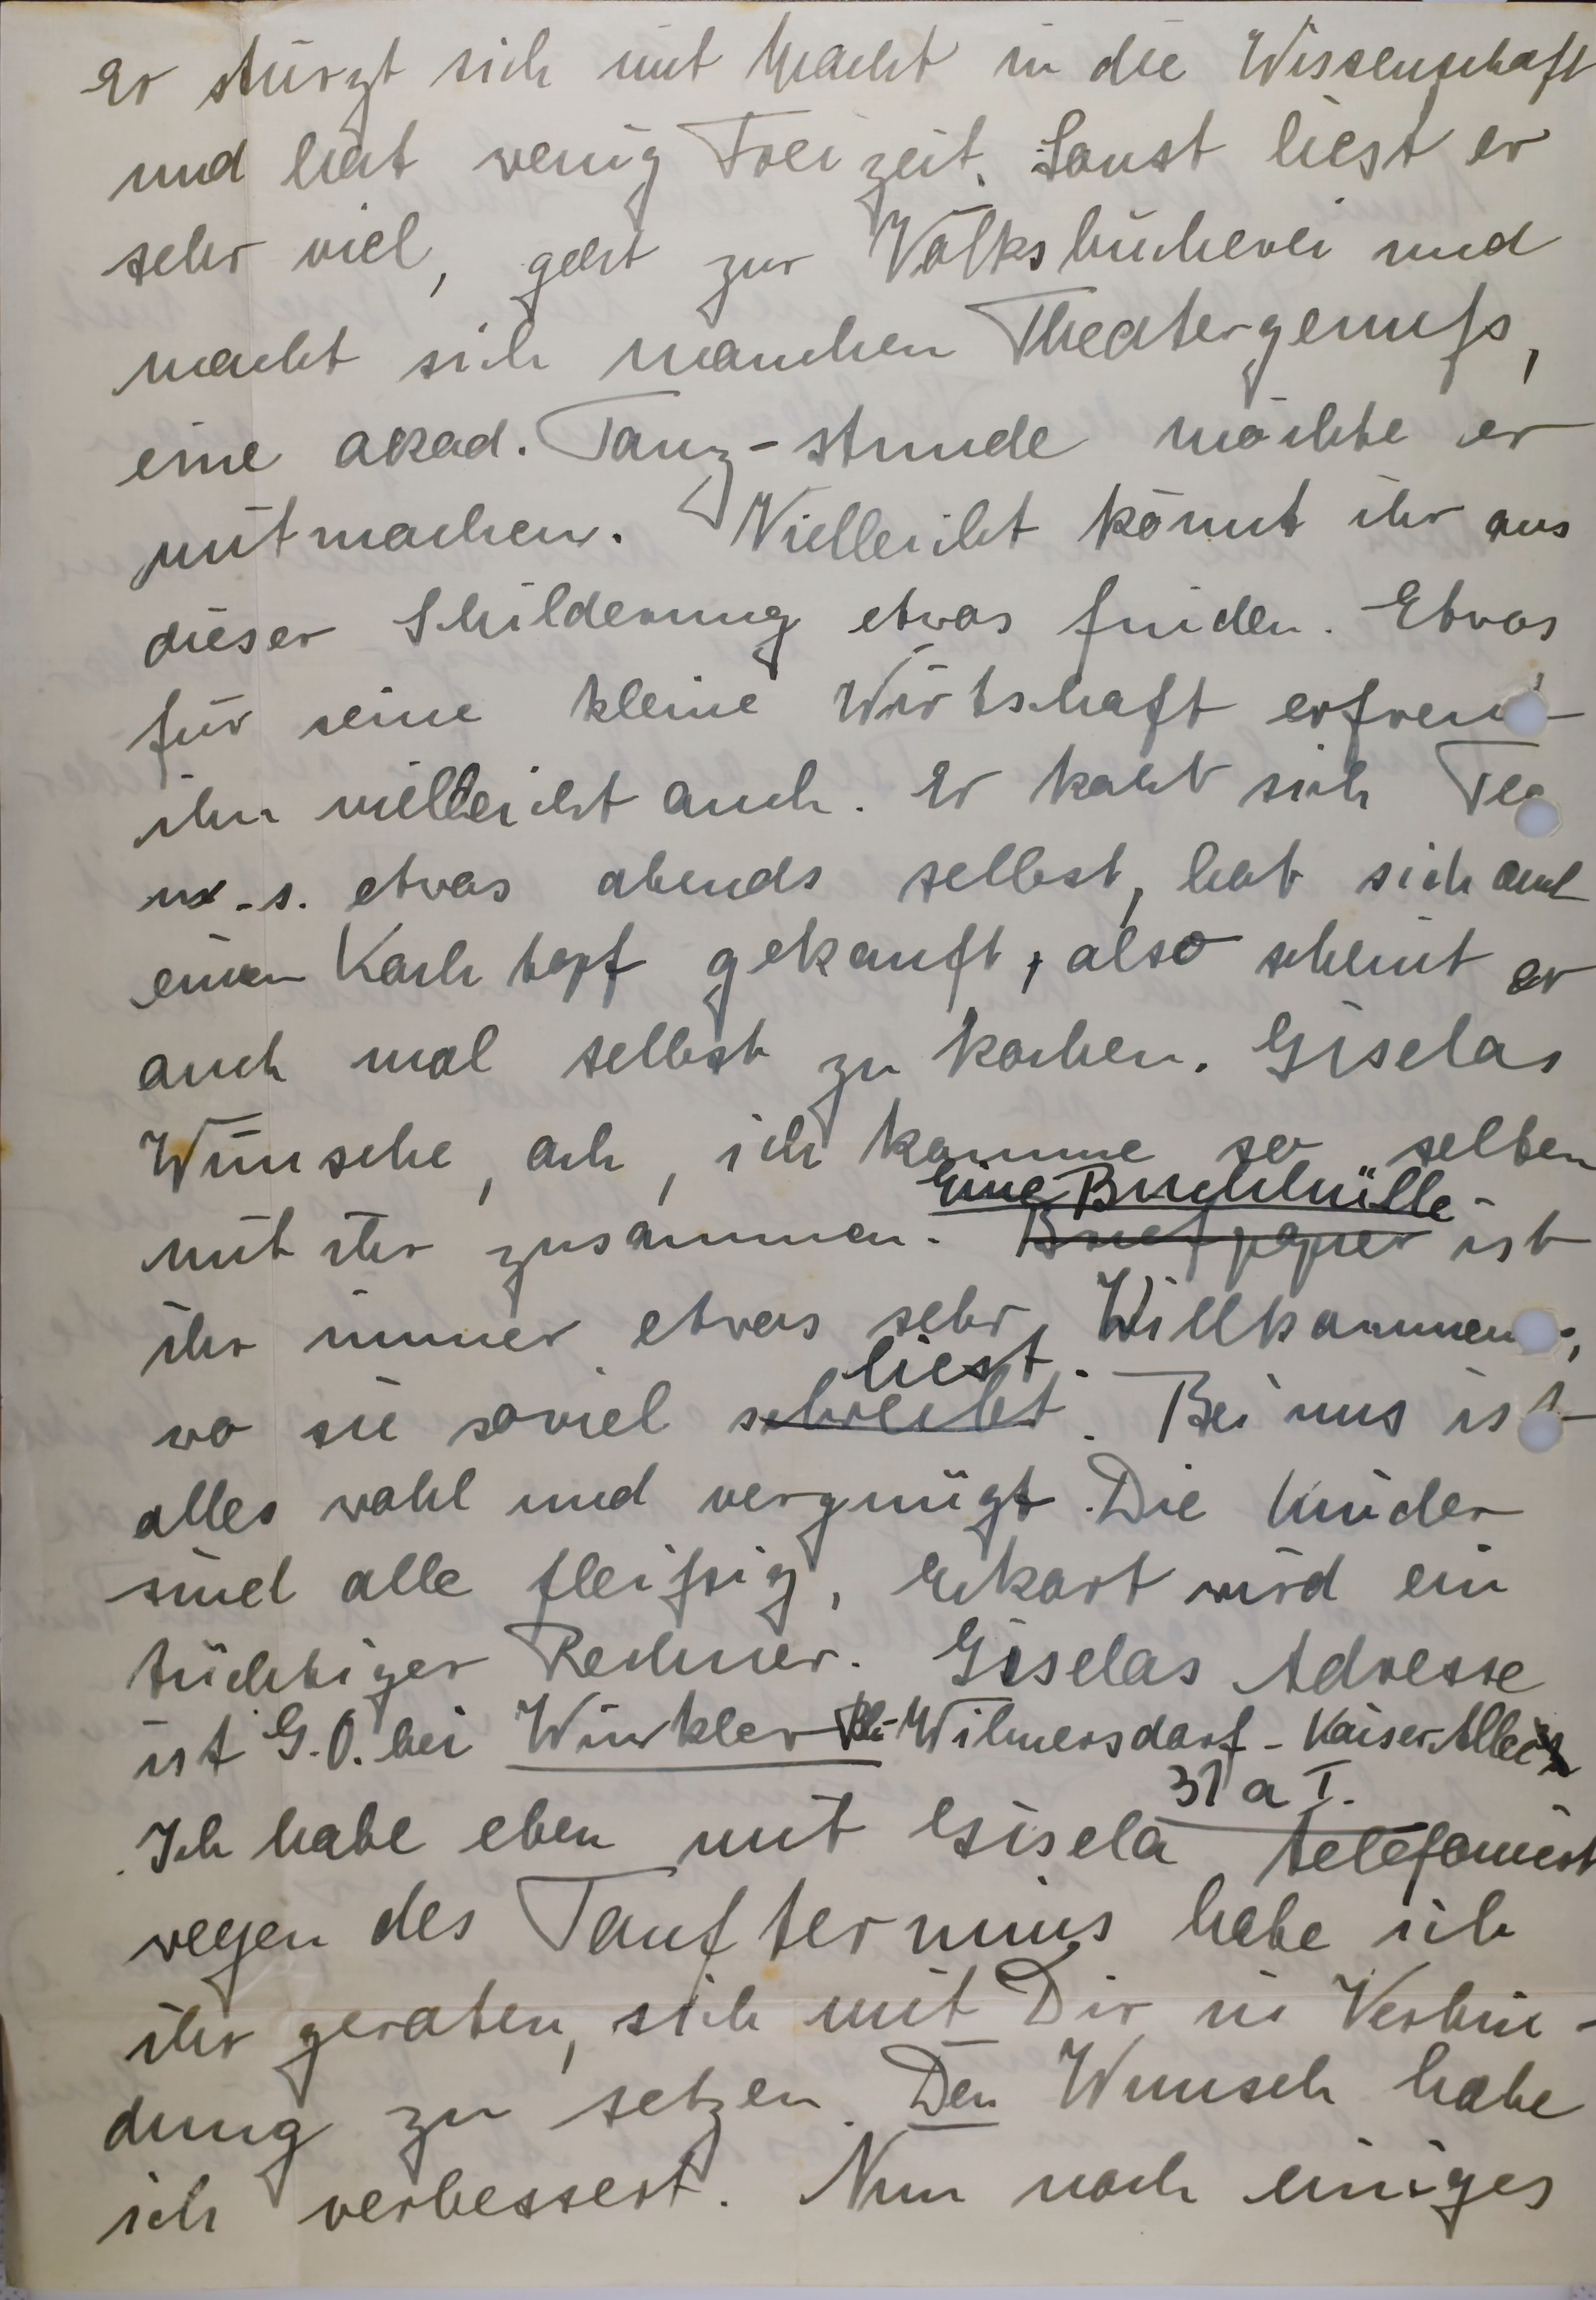 Er stürzt sich mit Macht in die Wissenschaft
und hat wenig Freizeit. Sonst liest er
sehr viel, geht zur Volksbücherei und
macht sich manchen Theatergenuß,
eine akad. Tanz-stunde möchte er
mitmachen. Vielleicht könnt ihr aus
dieser Schilderung etwas finden. Etwas
für seine kleine Wirtschaft erfreut
ihn vielleicht auch. Er kocht sich Tee
u. s. etwas abends selbst, hat sich auch
einen Kochtopf gekauft, also scheint er
auch mal selbst zu kochen. Giselas
Wünsche, ach, ich komme so selten
Eine Buchhülle
mit ihr zusammen. Briefpapier ist
ihr immer etwas sehr Willkommenes,
liest.
wo sie soviel schreibt. Bei uns ist
alles wohl und vergnügt. Die Kinder
sind alle fleißig, Eckart wird ein
tüchtiger Rechner. Giselas Adresse
ist G. O. bei Winkler Bln-Wilmersdorf - Kaiser Allee
31 a I.
Ich habe eben mit Gisela telefoniert
wegen des Tauftermins habe ich
ihr geraten, sich mit Dir in Verbin-
dung zu setzen. Den Wunsch habe
ich verbessert. Nun noch einiges